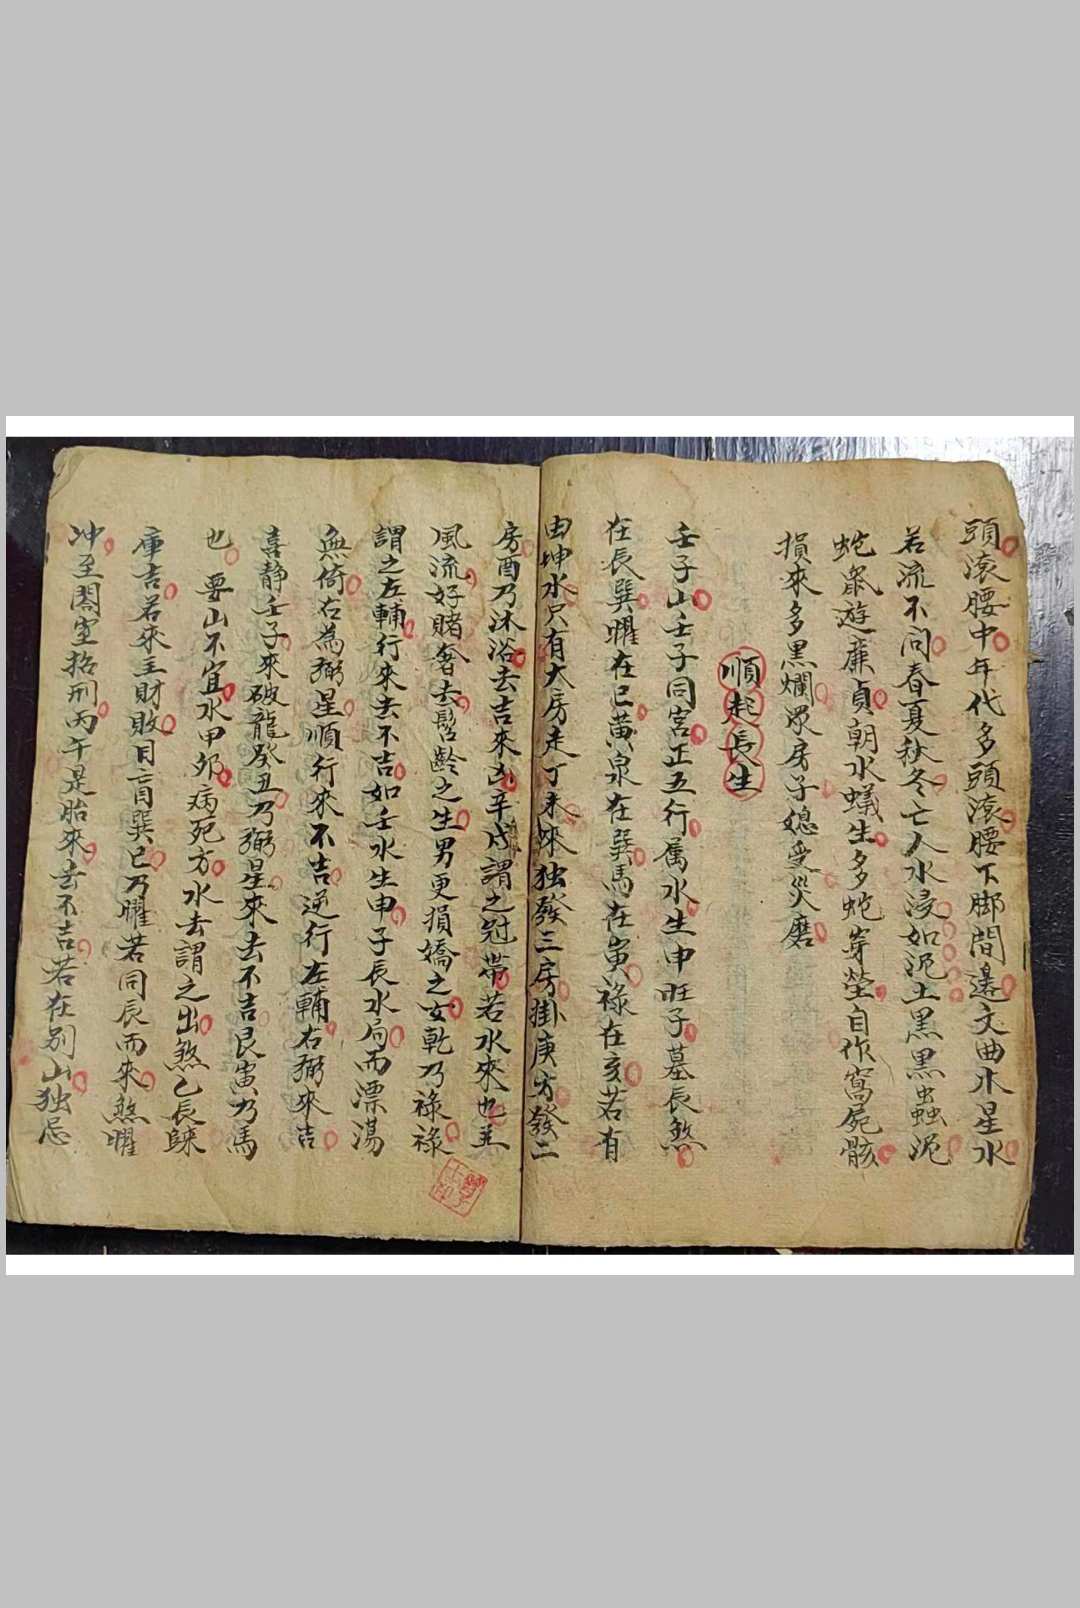 頭滾腰中年代多頭滾腰下脚間邊文曲水星水
若流不问春夏秋冬亡人水浸如泥土黑黑蟲泥
蛇鼠遊廉貞朝水蟻生多蛇穿塋自作窩屍骸
損來多黑爛眾房子媳受災磨
順起長生
壬子山壬子同宮正五行属水生申旺子墓辰煞
在長巽曜在巳黃泉在巽馬在寅祿在亥若有
由坤水只有大房走丁未來独發三房掛庚方發二
房酉乃沐浴去吉來凶辛戌謂之冠帶若水來也並
風流好賭奢去髫齡之生男更損嬌之女乾乃祿祿
謂之左輔行來去不吉如壬水生申子辰水局而漂蕩
無倚右為弼星順行來不吉逆行左輔右弼來吉
喜静壬子來破龍癸丑乃弼星來去不吉艮寅乃馬
也要山不宜水甲卯病死方水去謂之出煞乙辰歸
庫吉若來主財敗目盲巽巳乃曜若同辰而來煞曜
冲至閤室招刑丙午是胎來去不吉若在别山独忌